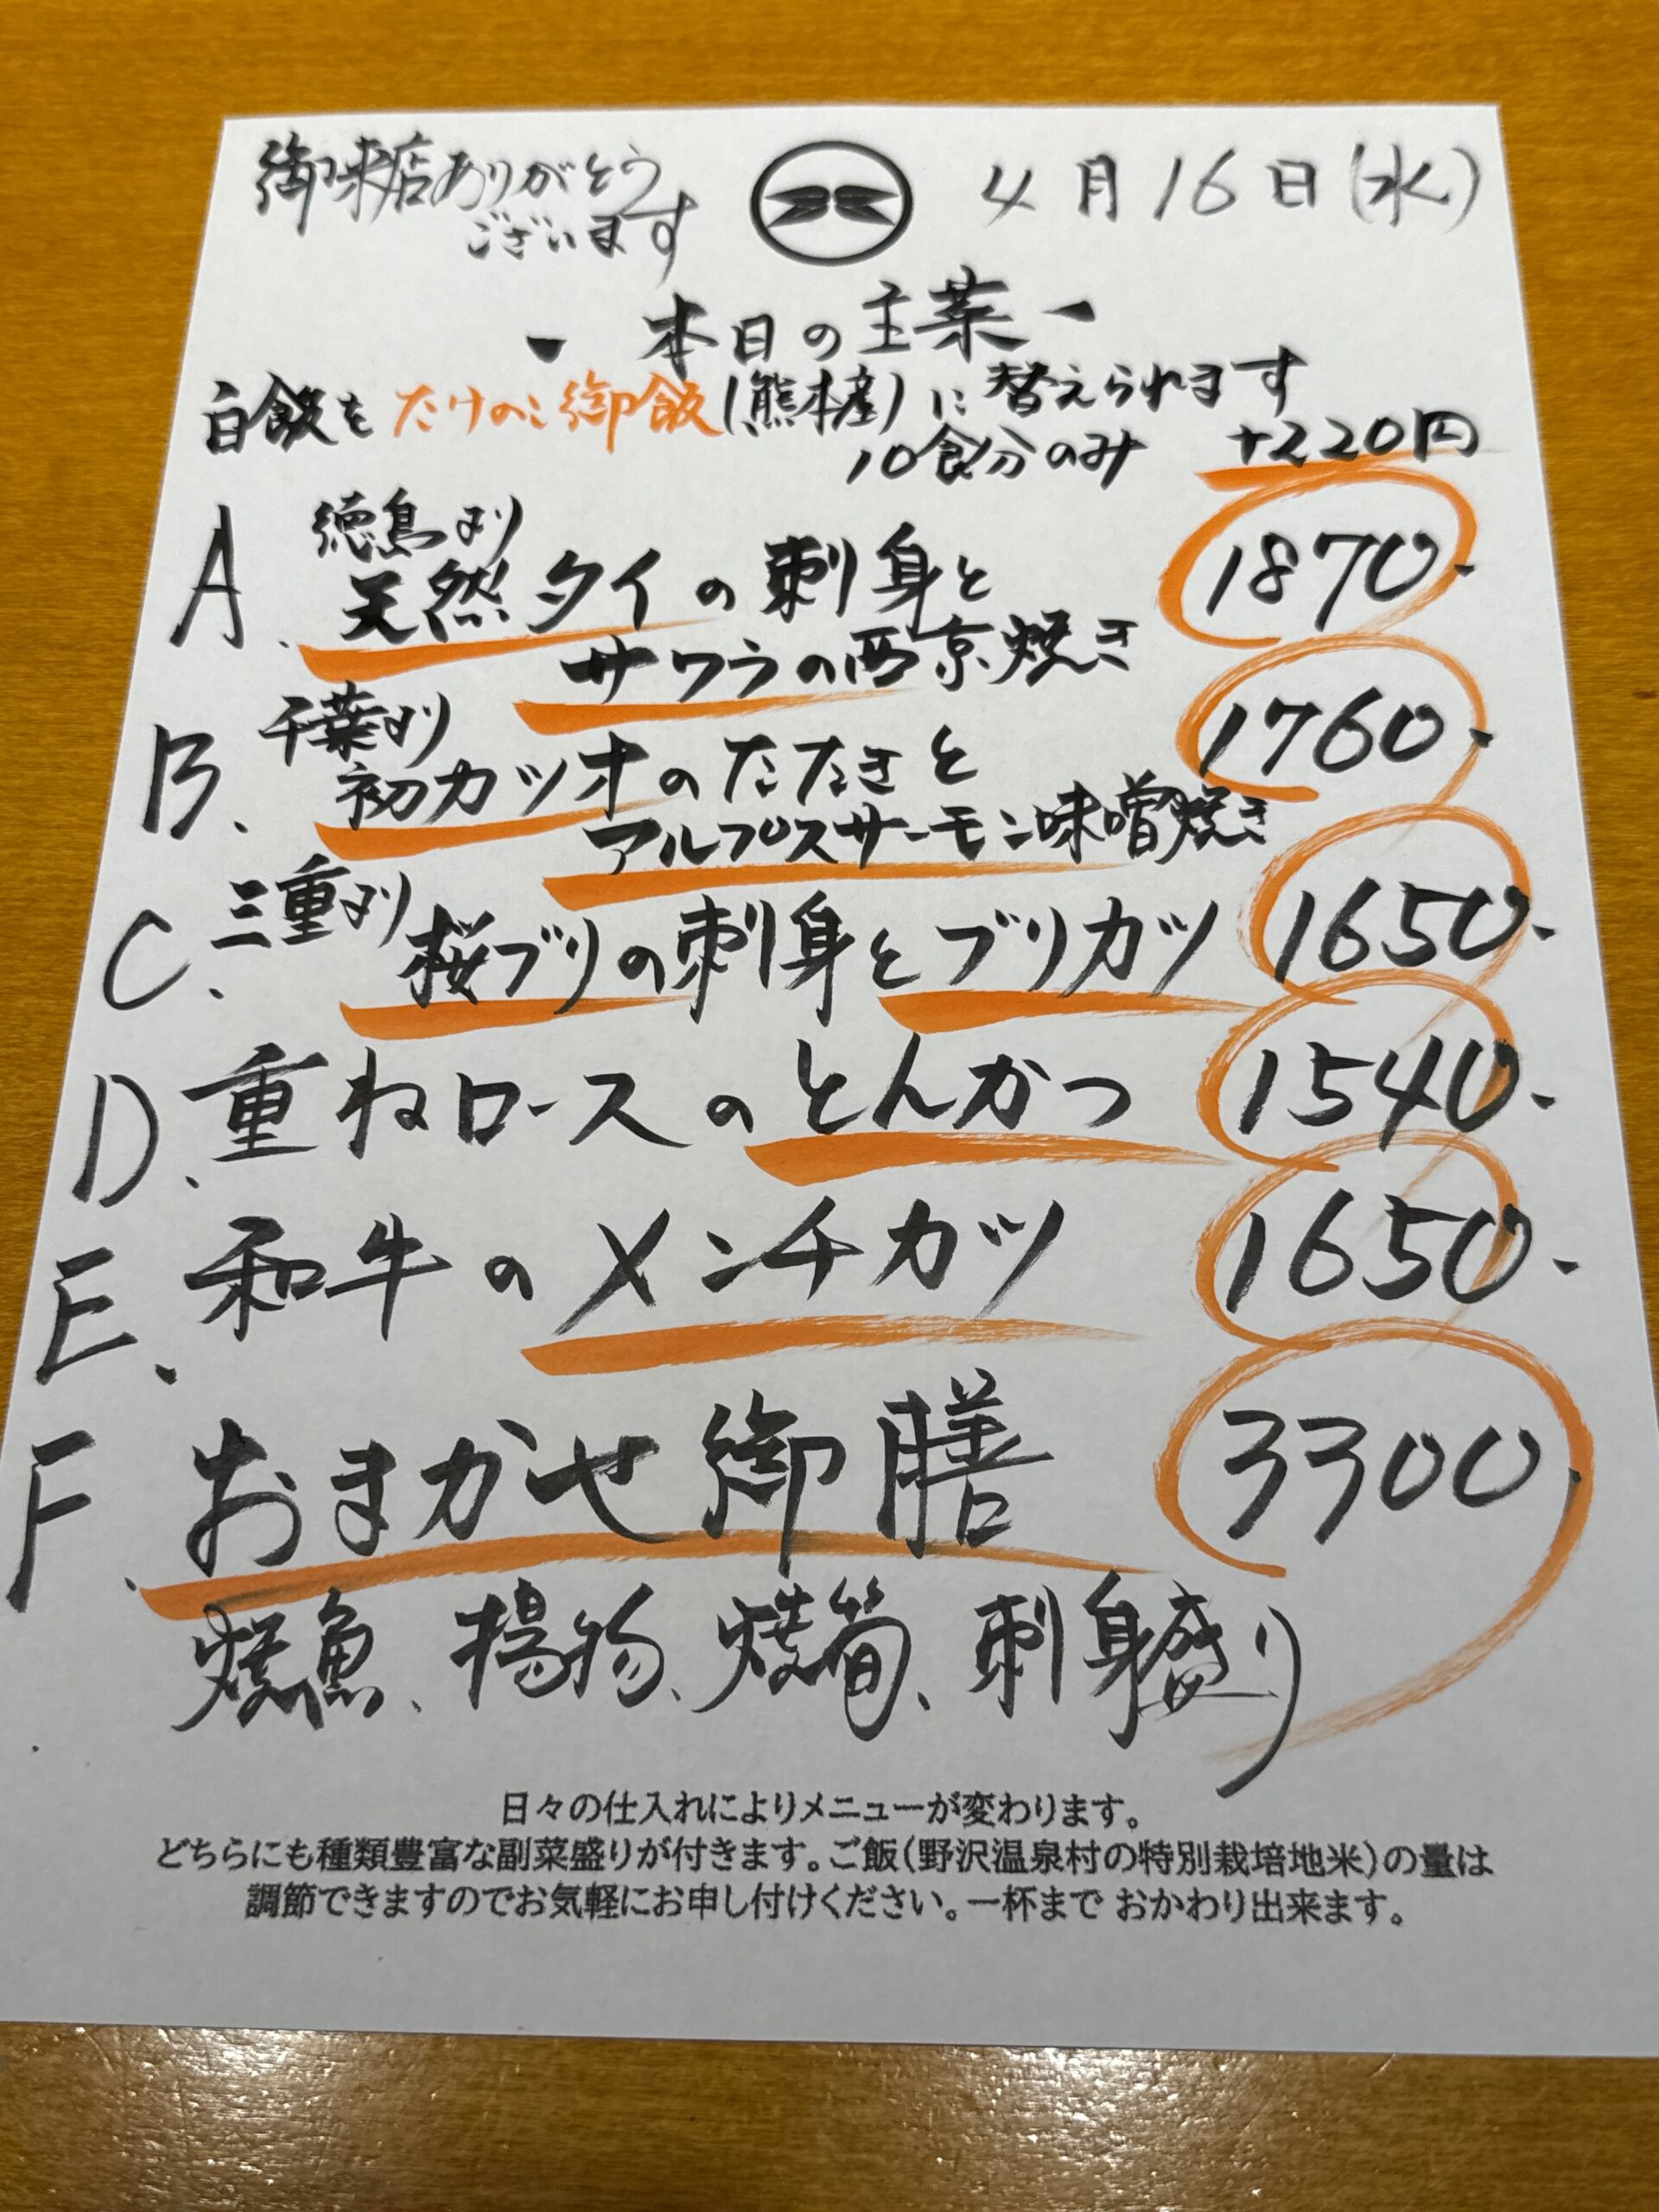 御来店ありがとう
ございます
4月16日(水)
- 本日の主菜 -
白飯をたけのこ御飯(熊本産)に替えられます
10食分のみ +220円
A. 徳島より
天然タイの刺身と 1870.
サワラの西京焼き
B. 千葉より
初カツオのたたきと 1760.
アルプスサーモン味噌焼き
C. 三重より
桜ブリの刺身とブリカツ 1650.
D. 重ねロースのとんかつ 1540.
E. 和牛のメンチカツ 1650.
F. おまかせ御膳 3300.
焼魚、揚物、焼筍、刺身盛り
日々の仕入れによりメニューが変わります。
どちらにも種類豊富な副菜盛りが付きます。ご飯(野沢温泉村の特別栽培地米)の量は
調節できますのでお気軽にお申し付けください。一杯まで おかわり出来ます。